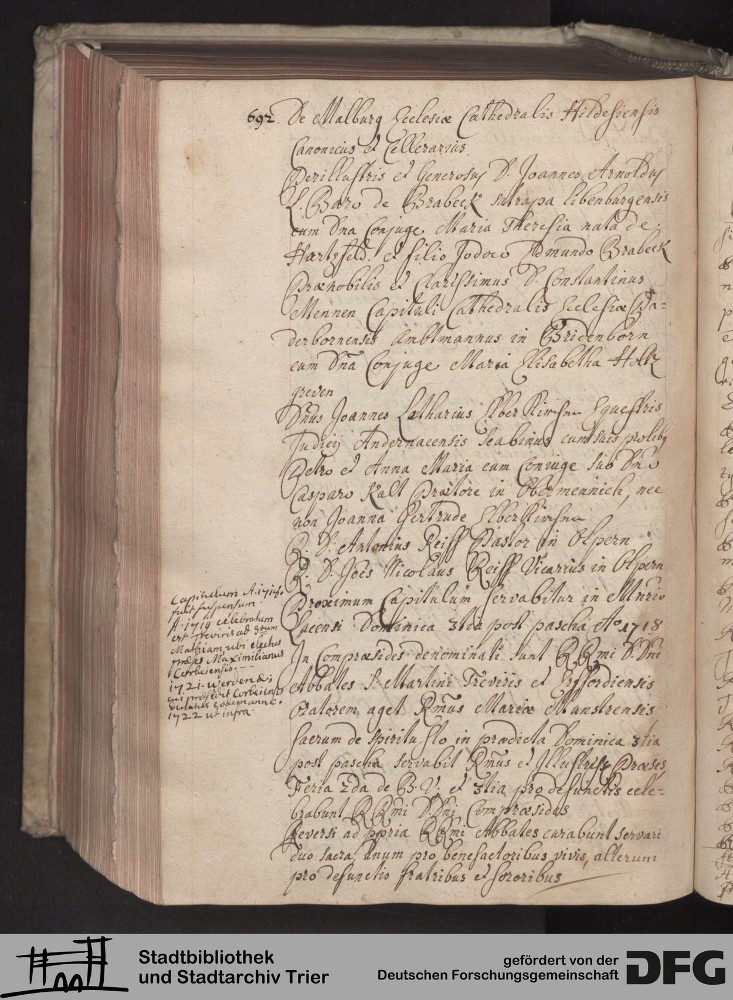 692. De Malburg Ecclesiæ Cathedralis Hildesiensis
Canonicus et Cellerarius
Perillustris et Generosus D. Joannes Arnoldus
L. Baro de Brabeck satrapa libenburgensis
cum Dna Conjuge Maria Theresia nata de
et filio Jodoco Edmundo Brabeck
Prænobilis et Clarissimus D. Constantinus
Mennen Capituli Cathedralis Ecclesiæ Pa=
derbornensis Ambtmannus in Bridenborn
cum Dna Conjuge Maria Elisabetha Holtz
greven
Dnus Joannes Latharius Elber Equestris
Judicij Andernacensis Scabinus cum suis prolib9
Petro et Anna Maria cum Conjuge sub Dno
Casparo Kalt Prætore in Obermennich, nec
non Joanna Gertrude Elber
R. D. Antonius Reiff Pastor in Olpern
R. D. Joes Nicolaus Reiff Vicarius in Olpern
Proximum Capitulum servabitur in Mnrio
Lacensi Dominica 3tia post pascha Ao 1718
In Compræsides denominati sunt RRmi D. Dni
Abbates S. Martini Treviris et
Oratorem aget Rmus Mariæ Munstrensis
sacrum de Spiritu Sto in prædicta Dominica 3tia
post pascha servabit Rmus et Illustriss Præses,
Feria 2da de B. V. et 3tia pro defunctis cele=
brabunt RRmi DDni Compræsides
Reversi ad ppria RRmi Abbates curabunt servari
duo sacra, unum pro benefactoribus vivis, alterum
pro defunctis fratribus et sororibus
Capitulum A. 1718
fuit suspensum
A. 1719 celebratum
est Treviris ad Stum
Mathiam, ubi electus
præses Maximilianus
Corbeiensis.
1721. Werdenæ,
1722 ut infra
Stadtbibliothek
und Stadtarchiv Trier
gefördert von der
Deutschen Forschungsgemeinschaft
DFG